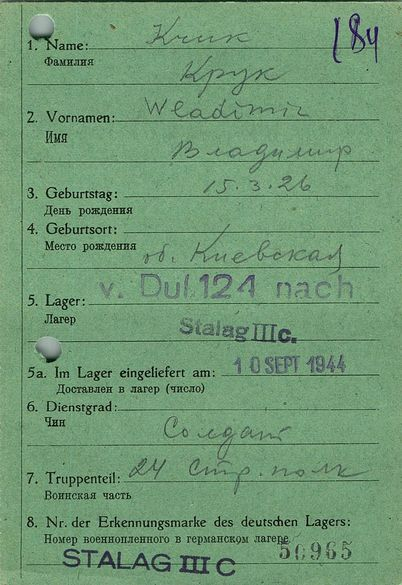 184
1. Name: Kruk
Фамилия Крук
2. Vornamen: Wladimir
Имя Владимир
3. Geburtstag: 15.3.26
День рождения
4. Geburtsort:
Место рождения об. Киевская
v. Dul.124 nach
5. Lager:
Лагер
Stalag III c.
5a. Im Lager eingeliefert am: 10 SEPT 1944
Доставлен в лагер (число)
6. Dienstgrad:
Чин Солдат
7. Truppenteil: 24 Стр. полк
Воинская часть
8. Nr. der Erkennungsmarke des deutschen Lagers:
Номер военнопленного в германском лагере 50965
STALAG III C